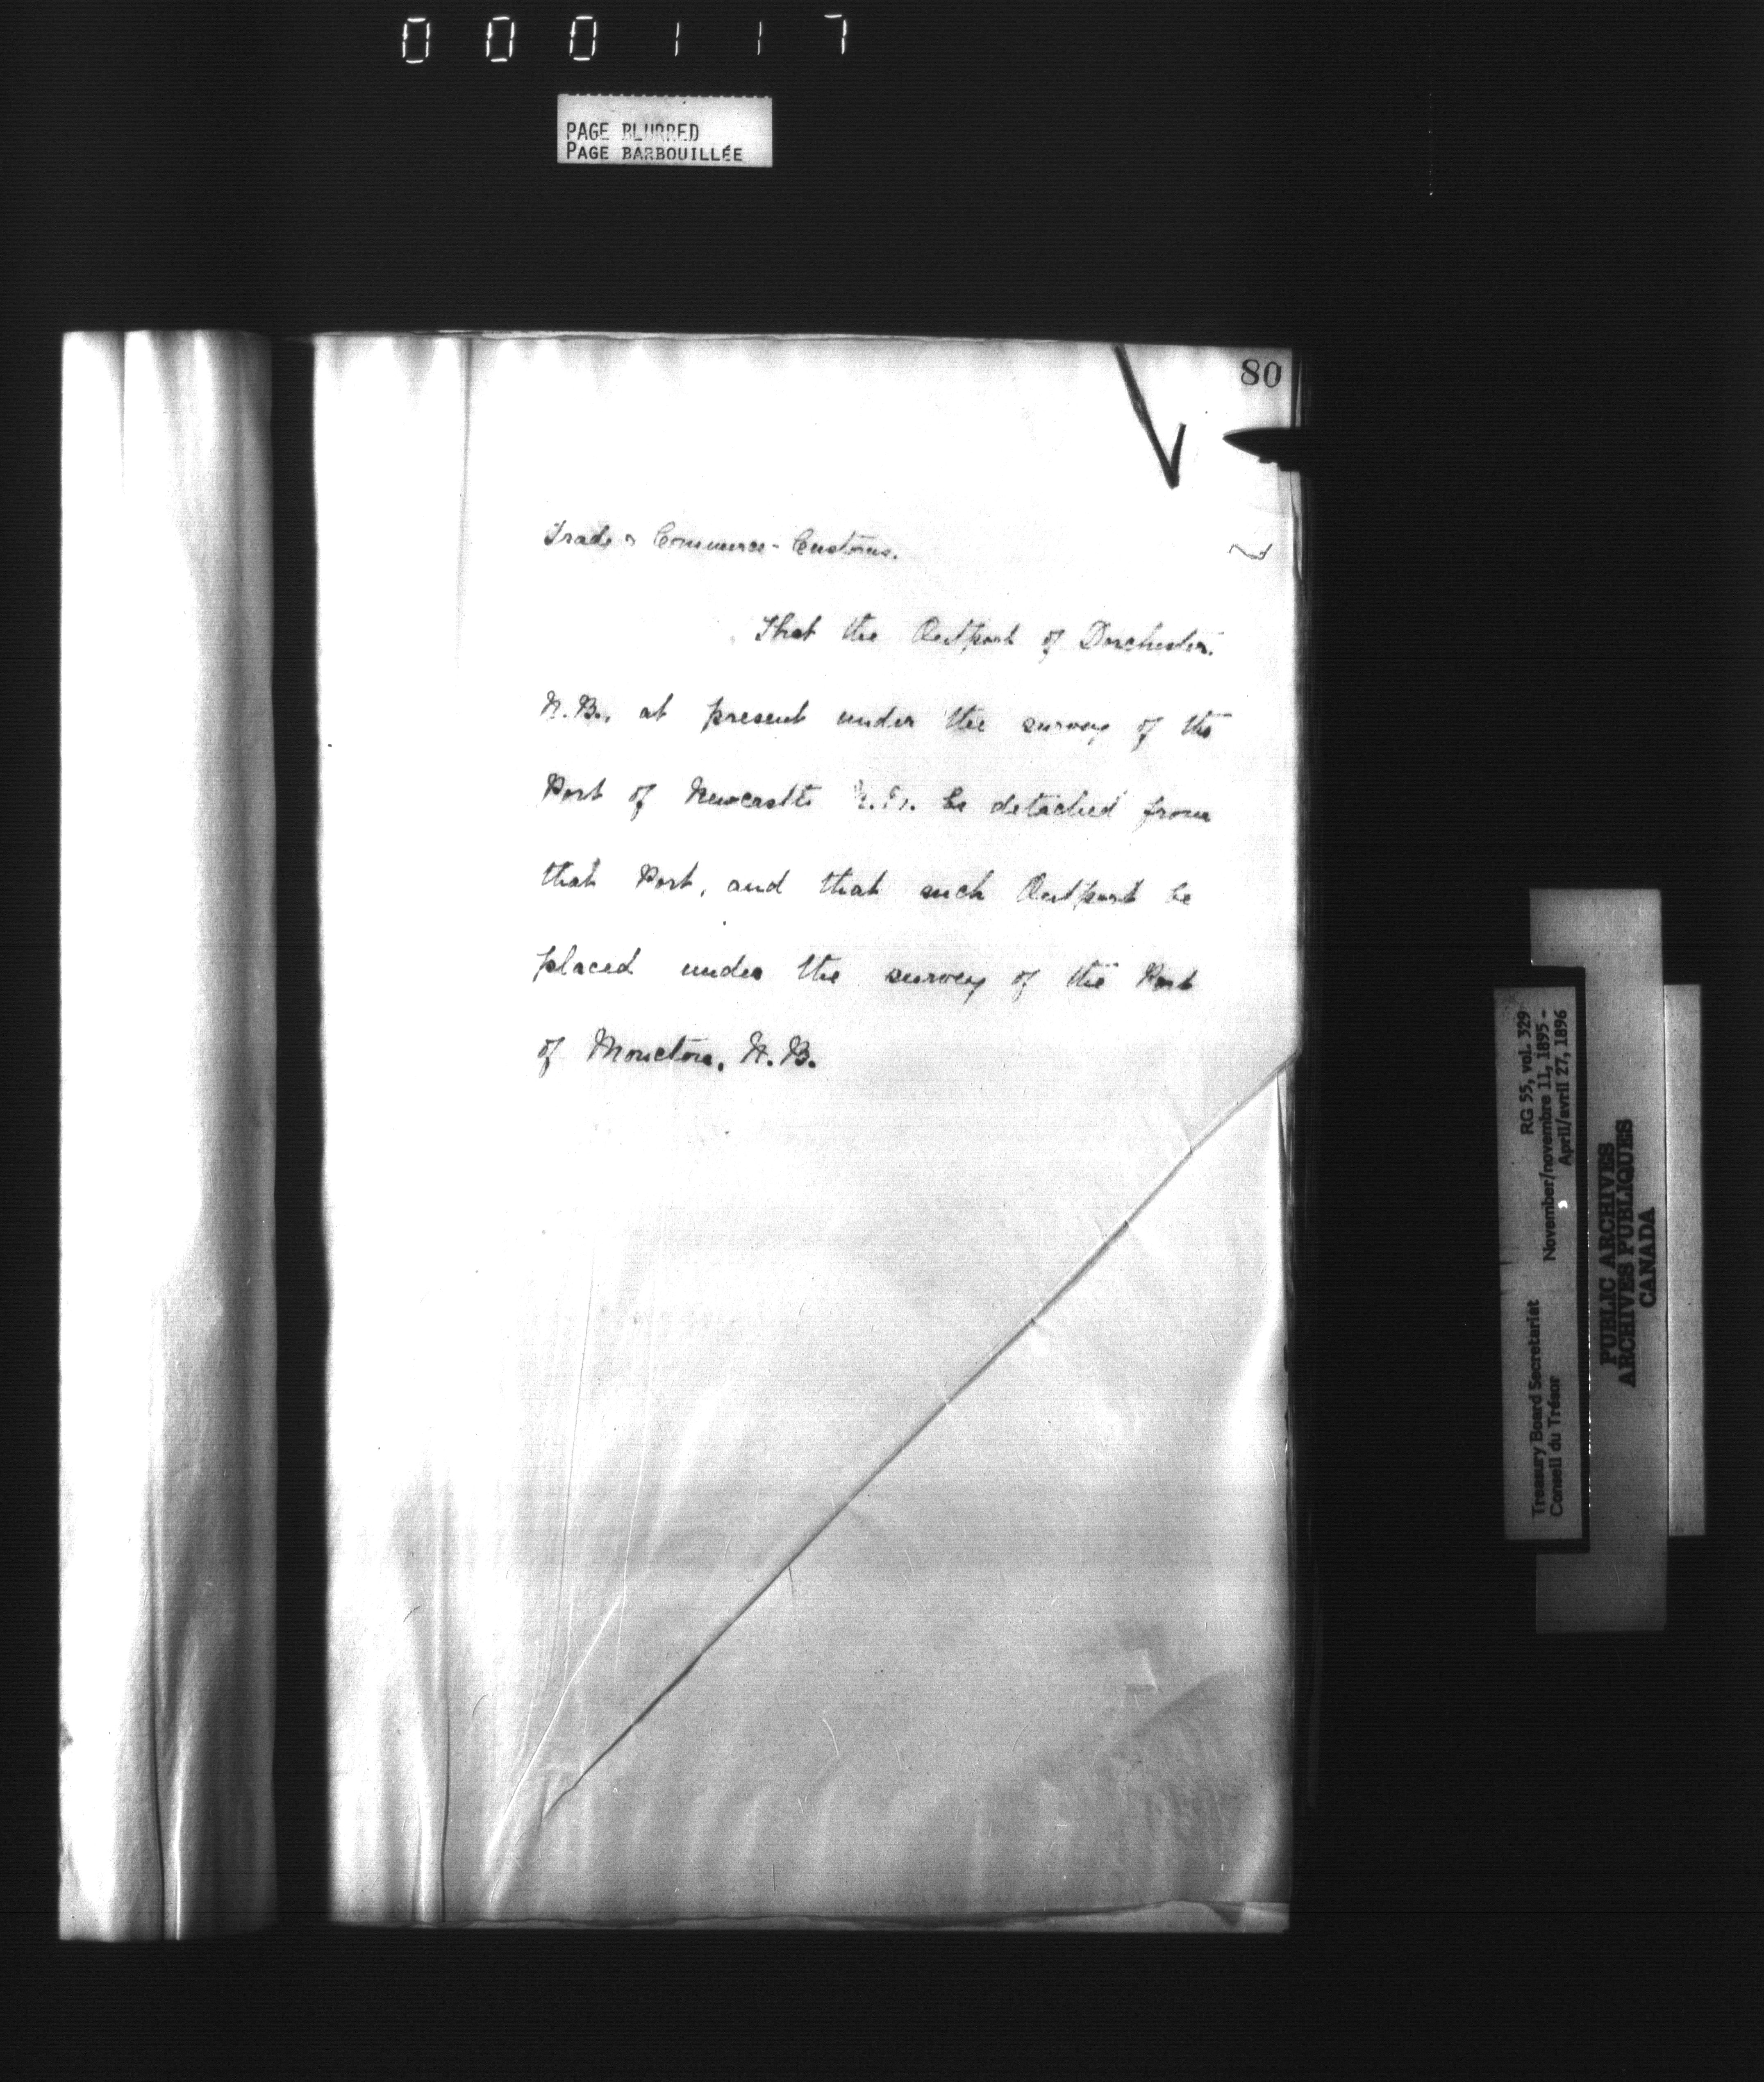 000117
PAGE BLURRED
PAGE BARBOUILLÉE
80
Trade & Commerce - Customs.
That the Outport of Dorchester.
N.B., at present under the survey of the
Port of Newcastle N.B. be detached from
that Port, and that such Outport be
placed under the survey of the Port
of Moncton, N.B.
Treasury Board Secretariat RG 55, vol. 329
Conseil du Trésor November/novembre 11, 1895 -
April/avril 27, 1896
PUBLIC ARCHIVES
ARCHIVES PUBLIQUES
CANADA